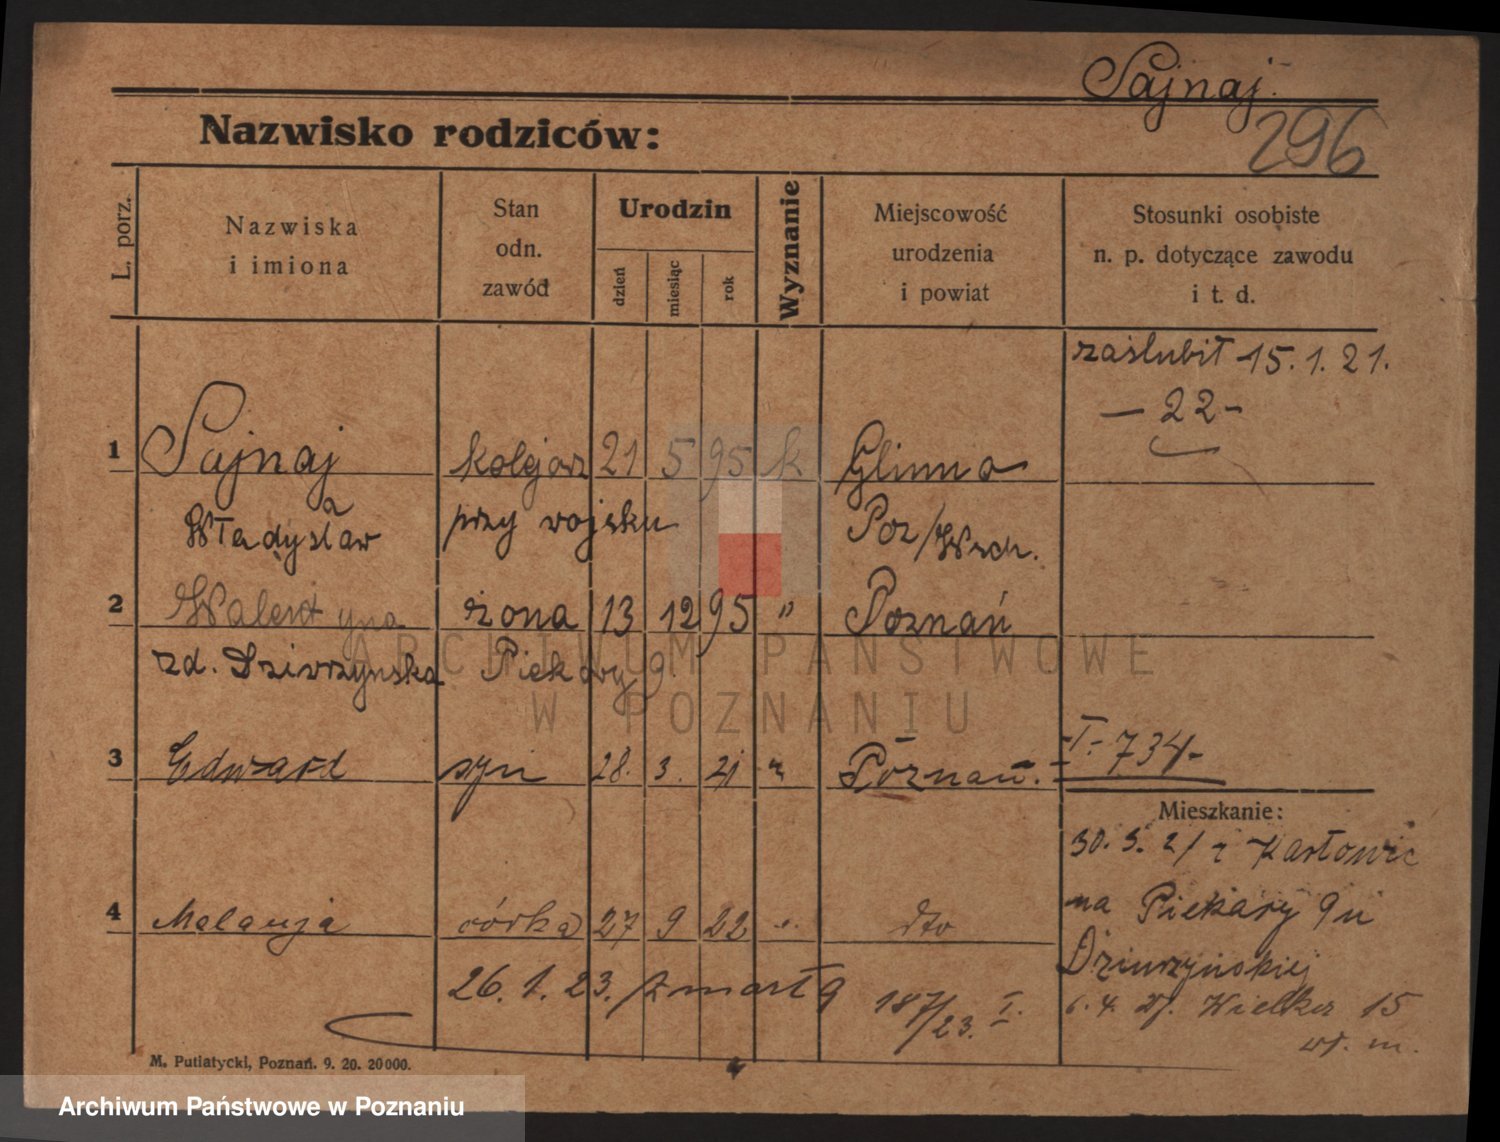 Sajnaj.
296
Nazwisko rodziców:
L. porz.
Nazwiska
i imiona
Stan
odn.
zawód
Urodzin
dzień
miesiąc
rok
Wyznanie
Miejscowość
urodzenia
i powiat
Stosunki osobiste
n. p. dotyczące zawodu
i t. d.
zaślubił 15.1.21.
— 22 -
1 Sajnaj kolejarz 21 5 95 k Glinno
Władysław przy wojsku Poz/Wsch.
2 Walentyna żona 13 12 95 " Poznań
zd. Dziurzyńska Piekary 9
3 Edward syn 28. 3. 21 " Poznań.
I - 734 -
Mieszkanie:
30. 3. 21 z Karłowic
na Piekary 9 u
Dziurzyńskiej
4 Melanja córka 27 9 22 " dto
26. 1. 23. zmarł 187/23. I.
6. 4. Wielka 15
wł. m.
M. Putiatycki, Poznań. 9. 20. 20000.
ARCHIWUM PAŃSTWOWE
W POZNANIU
Archiwum Państwowe w Poznaniu